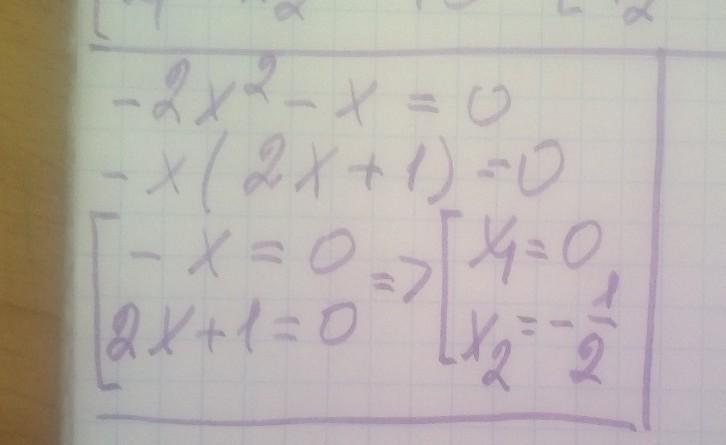 -2x² - x = 0
-x(2x+1) = 0
[ -x = 0 => [ x₁ = 0
2x+1 = 0 x₂ = -1/2